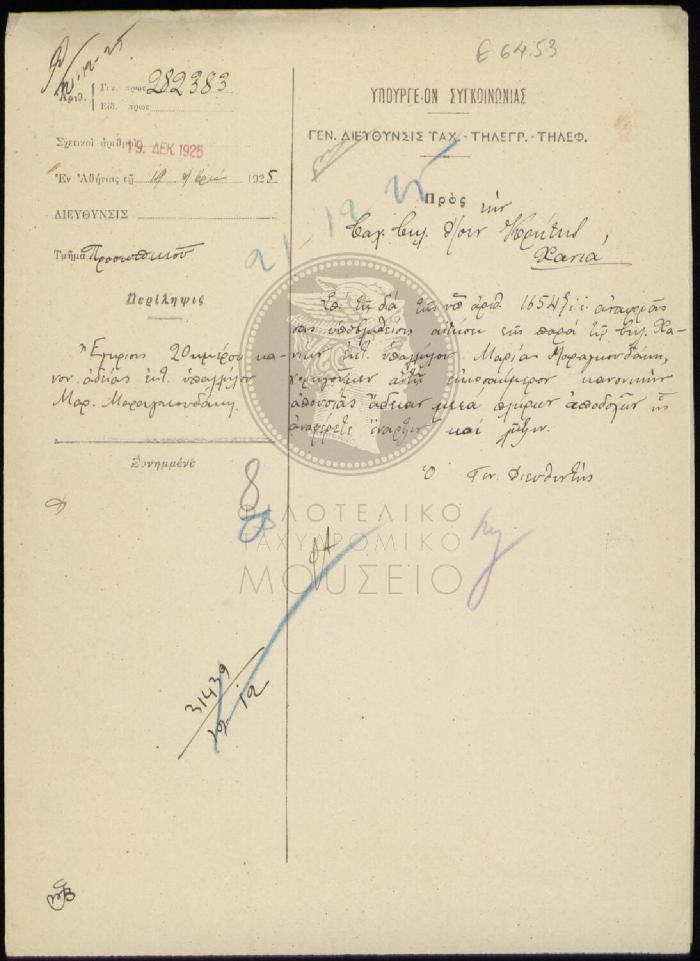 Ε 6453
21-12-25
Ἀριθ. Γεν. πρωτ. 282383
Εἰδ. πρωτ.
Σχετικοὶ ἀριθμοὶ
19. ΔΕΚ 1925
Ἐν Ἀθήναις τῇ 19 1925
ΔΙΕΥΘΥΝΣΙΣ
Τμῆμα Προσωπικοῦ
Περίληψις
Ἔγκρισις 20ημέρου κα-
νον. ἀδείας ἐκτ. ὑπαλλήλου
Μαρ. Μαραγκουδάκη
Συνημμένα
ΥΠΟΥΡΓΕΙΟΝ ΣΥΓΚΟΙΝΩΝΙΑΣ
ΓΕΝ. ΔΙΕΥΘΥΝΣΙΣ ΤΑΧ.-ΤΗΛΕΓΡ.-ΤΗΛΕΦ.
21-12-25
Πρὸς τὴν
Κρήτης
Χανιά
Ἐπὶ τῆς διὰ τῆς ὑπ' ἀριθ. 1654 ἀναφορᾶς
σας ὑποβληθείσης αἰτήσεως τῆς παρὰ τῷ Χα-
νίων ἐκτ. ὑπαλλήλου Μαρίας Μαραγκουδάκη,
χορηγοῦμεν αὐτῇ εἰκοσαήμερον κανονικὴν
ἀπουσίας ἄδειαν μετὰ πλήρων ἀποδοχῶν ἧς
ἀναφέρετε ἔναρξιν καὶ λῆξιν.
Ὁ Γεν. Διευθυντής
8
ΦΙΛΟΤΕΛΙΚΟ
ΤΑΧΥΔΡΟΜΙΚΟ
ΜΟΥΣΕΙΟ
31439